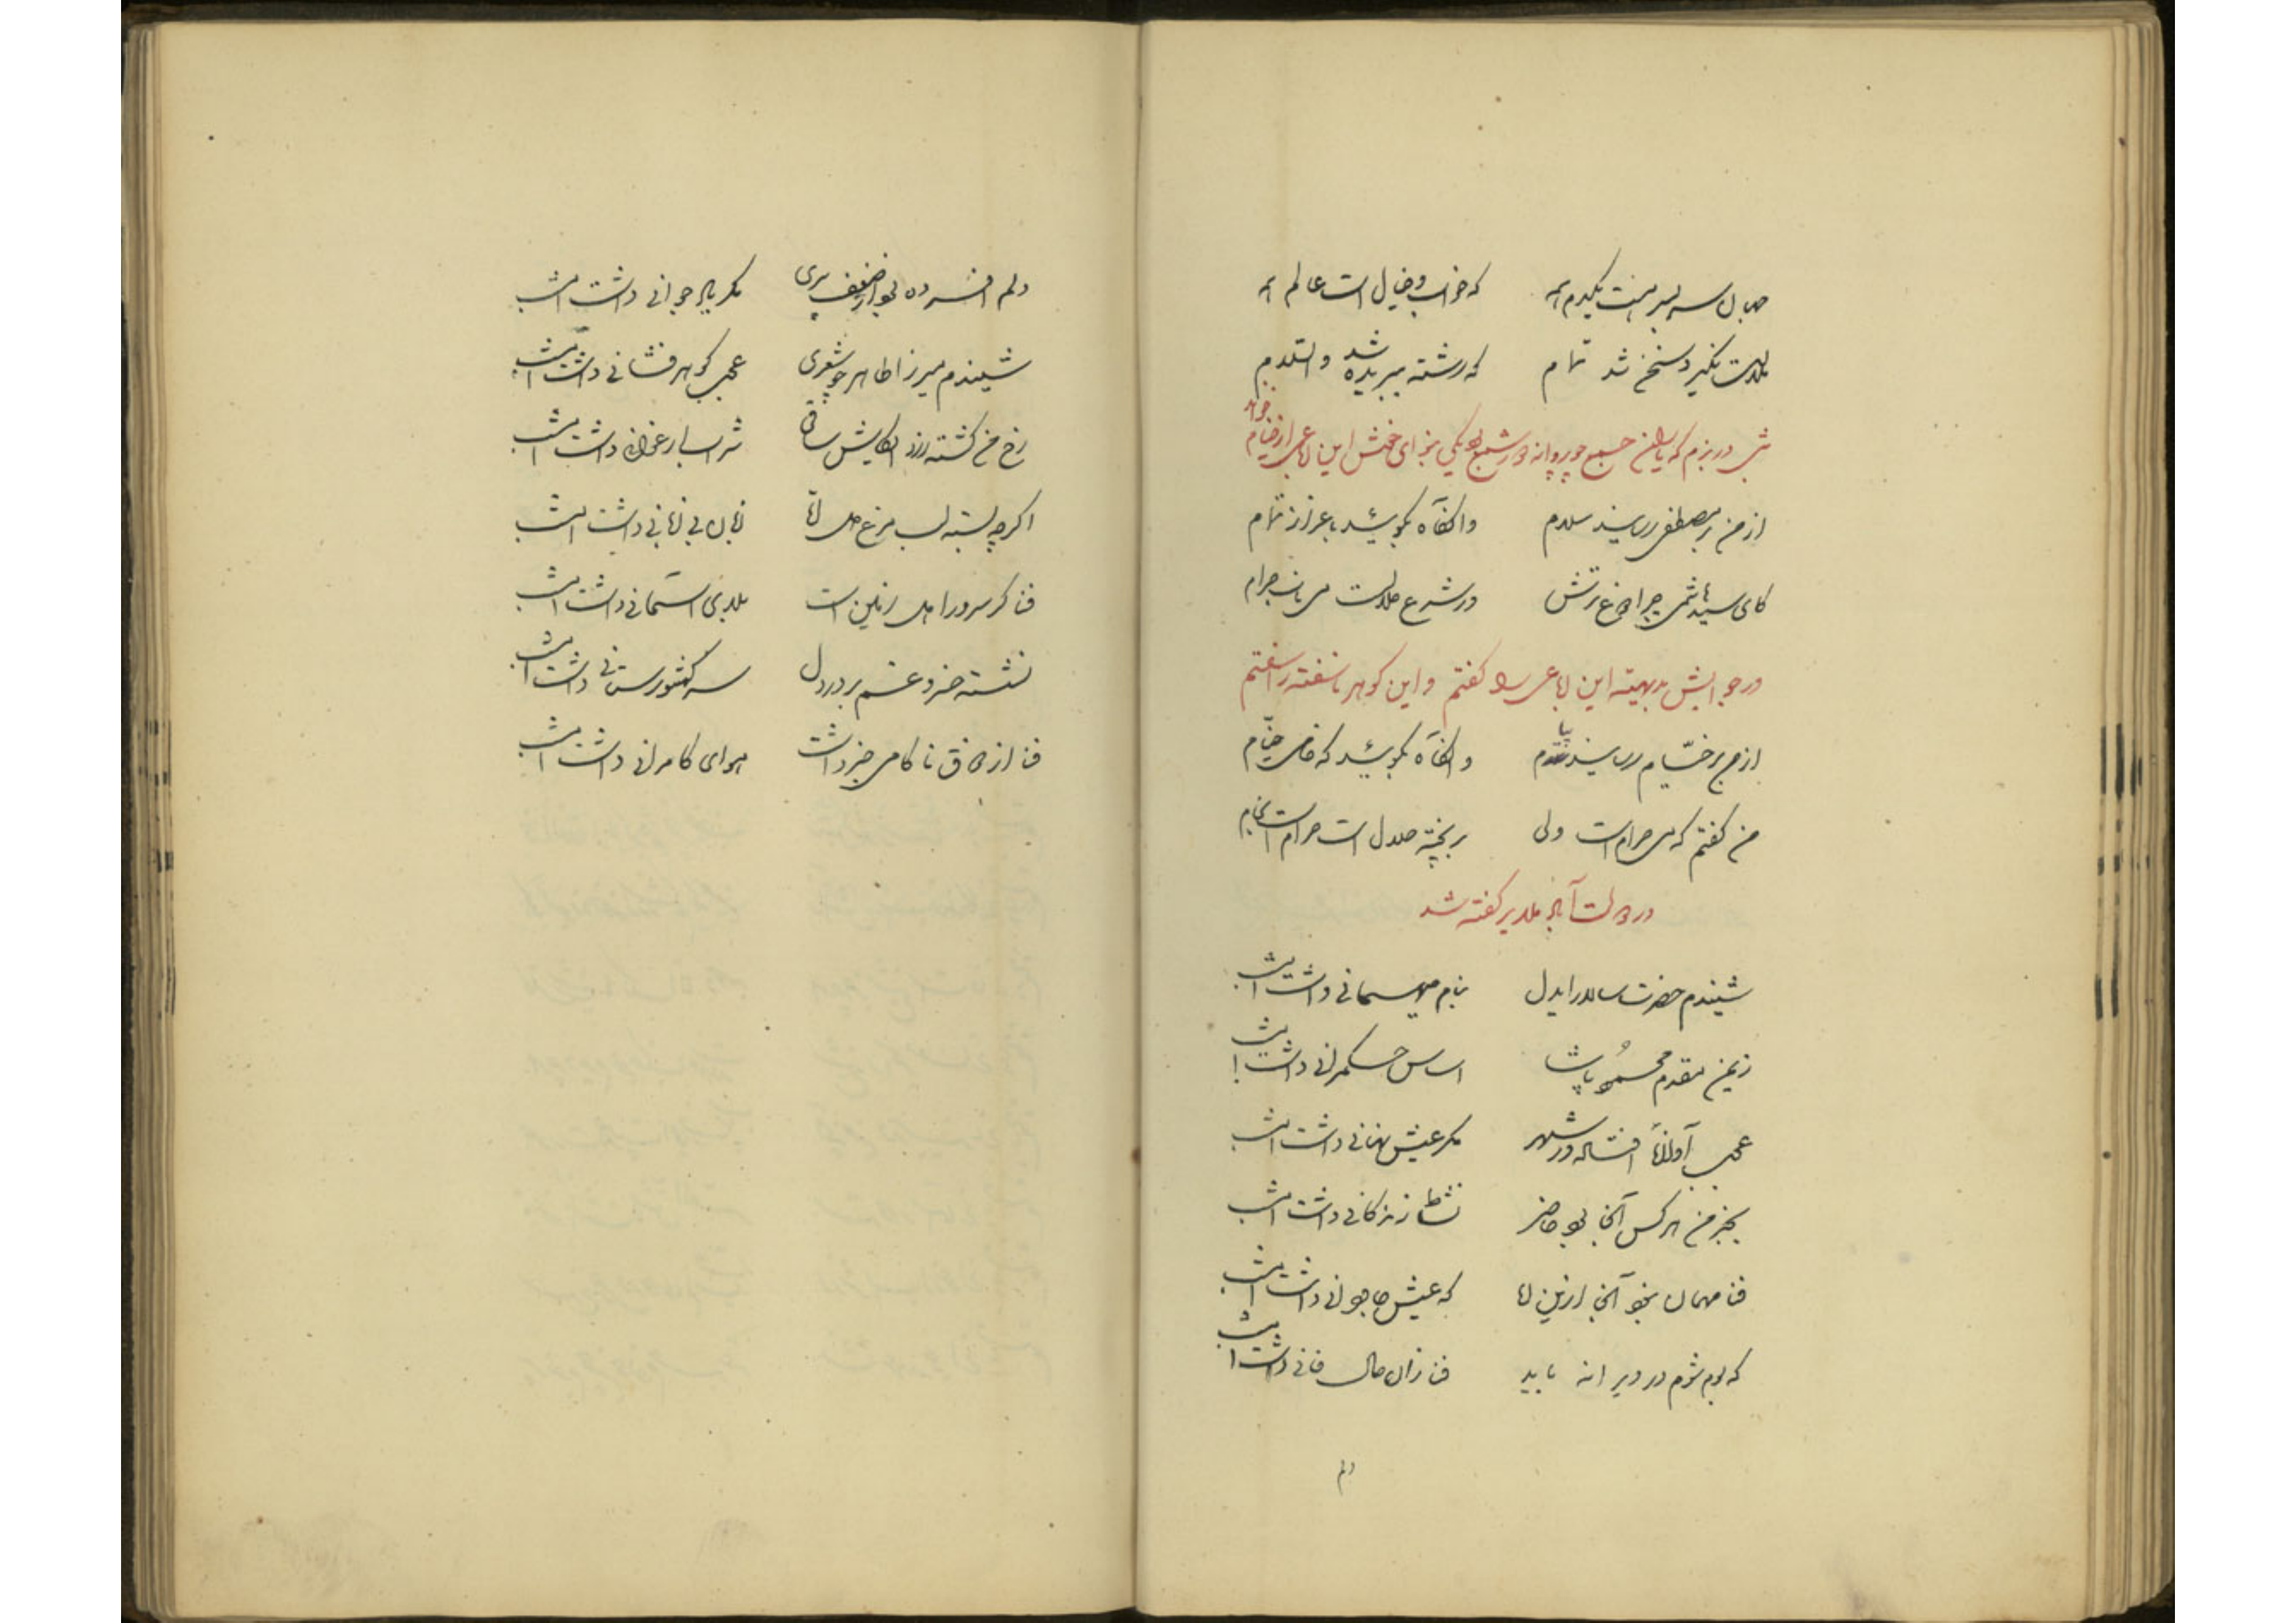 که خواب و خیال است عالم همه
شد تمام که رشته ببریده شد والسلام
شبی در بزم که یاران جمع چو پروانه دور شمع بود یکی بنوای خوش این رباعی از خیام خواند
از من بر مصطفی رسانید سلام وانگاه بگوئید باعزاز تمام
کای سید هاشمی چرا دوغ ترش در شرع حلالست می ناب حرام
در جوابش بدیهیة این رباعی را گفتم و این گوهر ناسفته را سفتم
از من بر خیام رسانید پیام وانگاه بگوئید که خامی خیام
من گفتم که می حرام است ولی بر پخته حلال است حرام است بخام
در گفته شد
شنیدم حضرت سالار ایدل بنام میهمانی داشت امشب
زیمن مقدم محمود پاشا اساس حکمرانی داشت امشب
عجب در شهر مگر عیش نهانی داشت امشب
بجز من هر کس آنجا بود حاضر نشاط زندگانی داشت امشب
فنا مهمان نبود آنجا ازین رو که عیش جاودانی داشت امشب
که بوم شوم در ویرانه باید فنا زان حال فانی داشت امشب
دلم
دلم افسرده بود از ضعف پیری مگر یار جوانی داشت امشب
شنیدم میرزا طاهر چو شعری عجب گوهر فشانی داشت امشب
رخ من گشته زرد ساقی شراب ارغوان داشت امشب
اگرچه بسته لب مرغ دل ما زبان بی زبانی داشت امشب
فنا گر سرو را میل زمین است بلای آسمانی داشت امشب
نشسته خسرو غم بر در دل سر کشورستانی داشت امشب
فنا از ناکامی خبر داشت هوای کامرانی داشت امشب